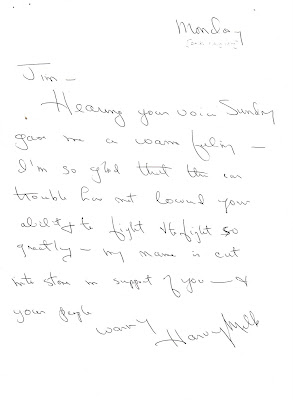 Monday
Jim —
Hearing your voice Sunday
gave me a warm feeling —
I'm so glad that the car
trouble has not lowered your
ability to fight the fight so
greatly — my name is cut
into stone in support of you — &
your people
warmly Harvey Milk